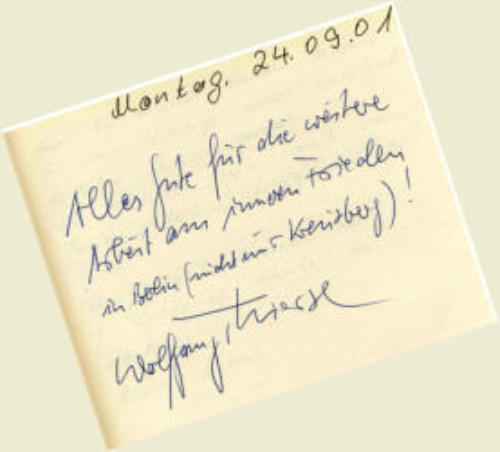 Montag. 24.09.01
Alles Gute für die weitere
Arbeit am inneren Frieden
in Berlin (nicht nur Kreuzberg)!
Wolfgang Thierse